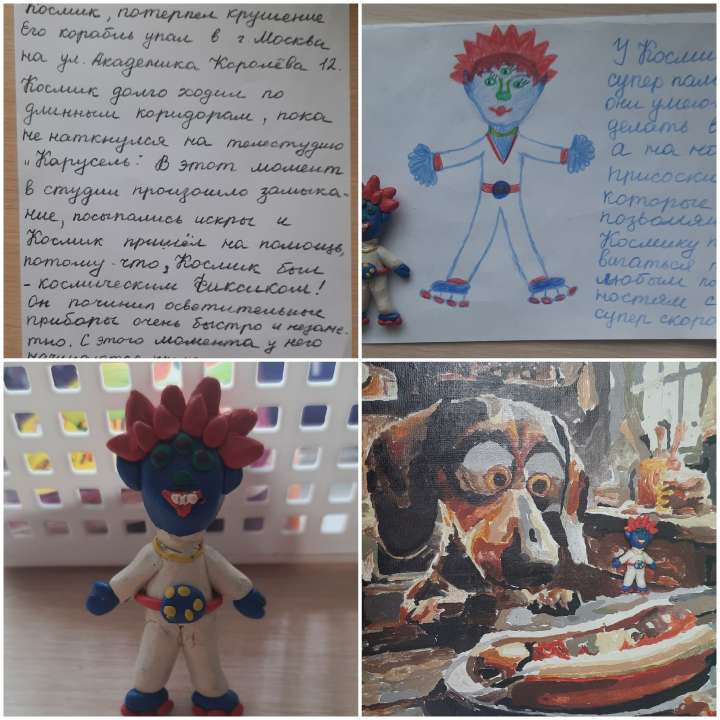 Космик, потерпел крушение
Его корабль упал в г. Москва
на ул. Академика Королёва 12.
Космик долго ходил по
длинным коридорам, пока
не наткнулся на телестудию
„Карусель". В этот момент
в студии произошло замыка-
ние, посыпались искры и
Космик пришёл на помощь,
потому-что, Космик был
-космическим фиксиком!
Он починил осветительные
приборы очень быстро и незаме-
тно. С этого момента у него
У Косми
супер
они
делать в
а на
присоски
которые
позволя
Космику п
вигаться п
любым по
ностям с
супер скоро